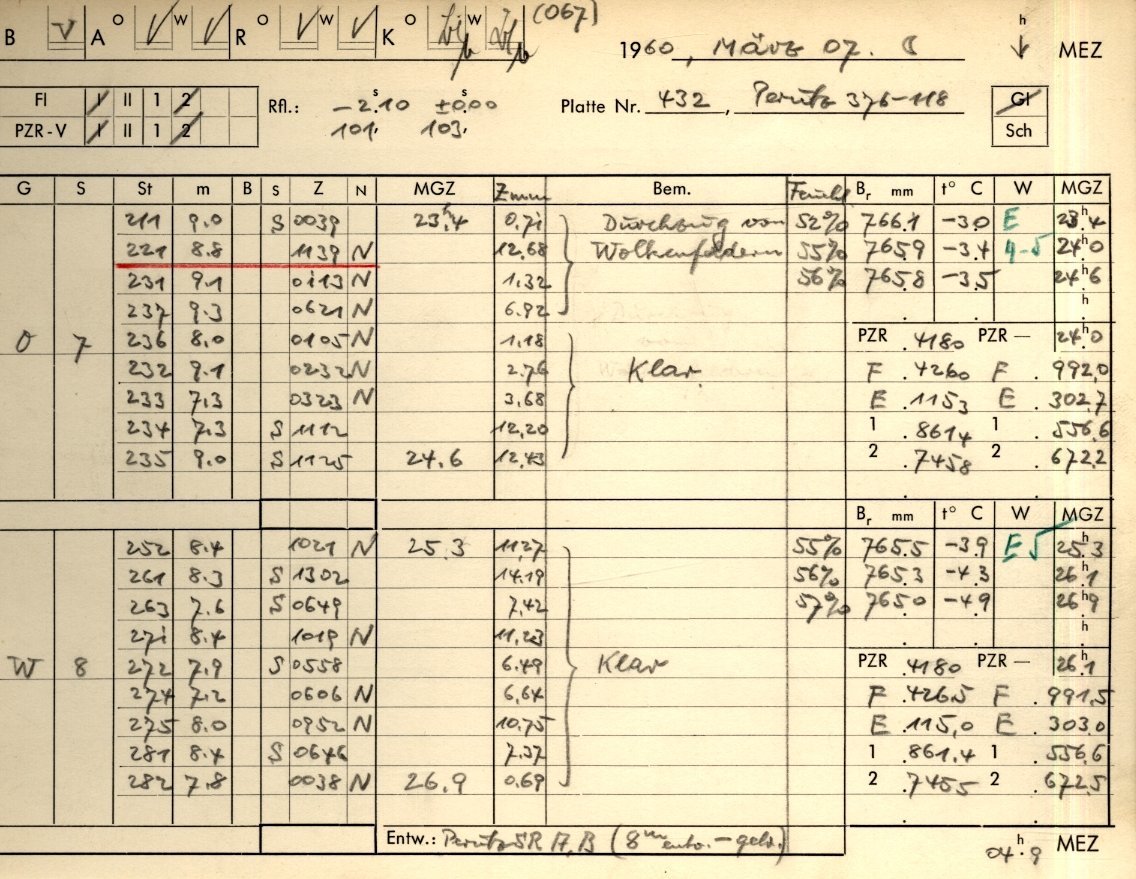 B V A O √ W √ R O √ W √ K O W (067)
1960, März 07. ☾ h ↓ MEZ
FI I II 1 2 Rfl.: −2ˢ.10 ±0ˢ.00 Platte Nr. 432, Perutz 376-118 Gl
PZR-V I II 1 2 101, 103, Sch
G S St m B S Z N MGZ Zmm Bem. Feucht Br mm t° C W MGZ
211 9.0 S 0039 23ʰ.4 0.71 Durchzug von 52% 766.1 −3.0 E 23ʰ.4
221 8.8 1139 N 12.68 Wolkenfeldern 55% 765.9 −3.4 4-5 24ʰ.0
231 9.1 0113 N 1.32 56% 765.8 −3.5 24ʰ.6
237 9.3 0621 N 6.92 . . . h
O 7 236 8.0 0105 N 1.18 PZR .4180 PZR — 24ʰ.0
232 9.1 0232 N 2.76 Klar. F .4260 F .992,0
233 7.3 0323 N 3.68 E .1153 E .302,7
234 7.3 S 1112 12,20 1 .8614 1 .556,6
235 9.0 S 1125 24.6 12,43 2 .7458 2 .672,2
Br mm t° C W MGZ
252 8.4 1021 N 25.3 11,27 55% 765.5 −3.9 E 5 25ʰ.3
261 8.3 S 1302 14.19 56% 765.3 −4.3 26ʰ.1
263 7.6 S 0649 7,42 57% 765.0 −4.9 26ʰ.9
271 8.4 1019 N 11,23 . . . h
W 8 272 7.9 S 0558 6.49 Klar PZR .4180 PZR — 26ʰ.1
274 7.2 0606 N 6,64 F .426.5 F .991,5
275 8.0 0952 N 10,75 E .115,0 E .303.0
281 8.4 S 0646 7.37 1 .861.4 1 .556,6
282 7.8 0038 N 26.9 0.69 2 .7455 2 .672,5
Entw.: Perutz SR A,B (8ᵐ entw. - geb.) 04ʰ.9 MEZ